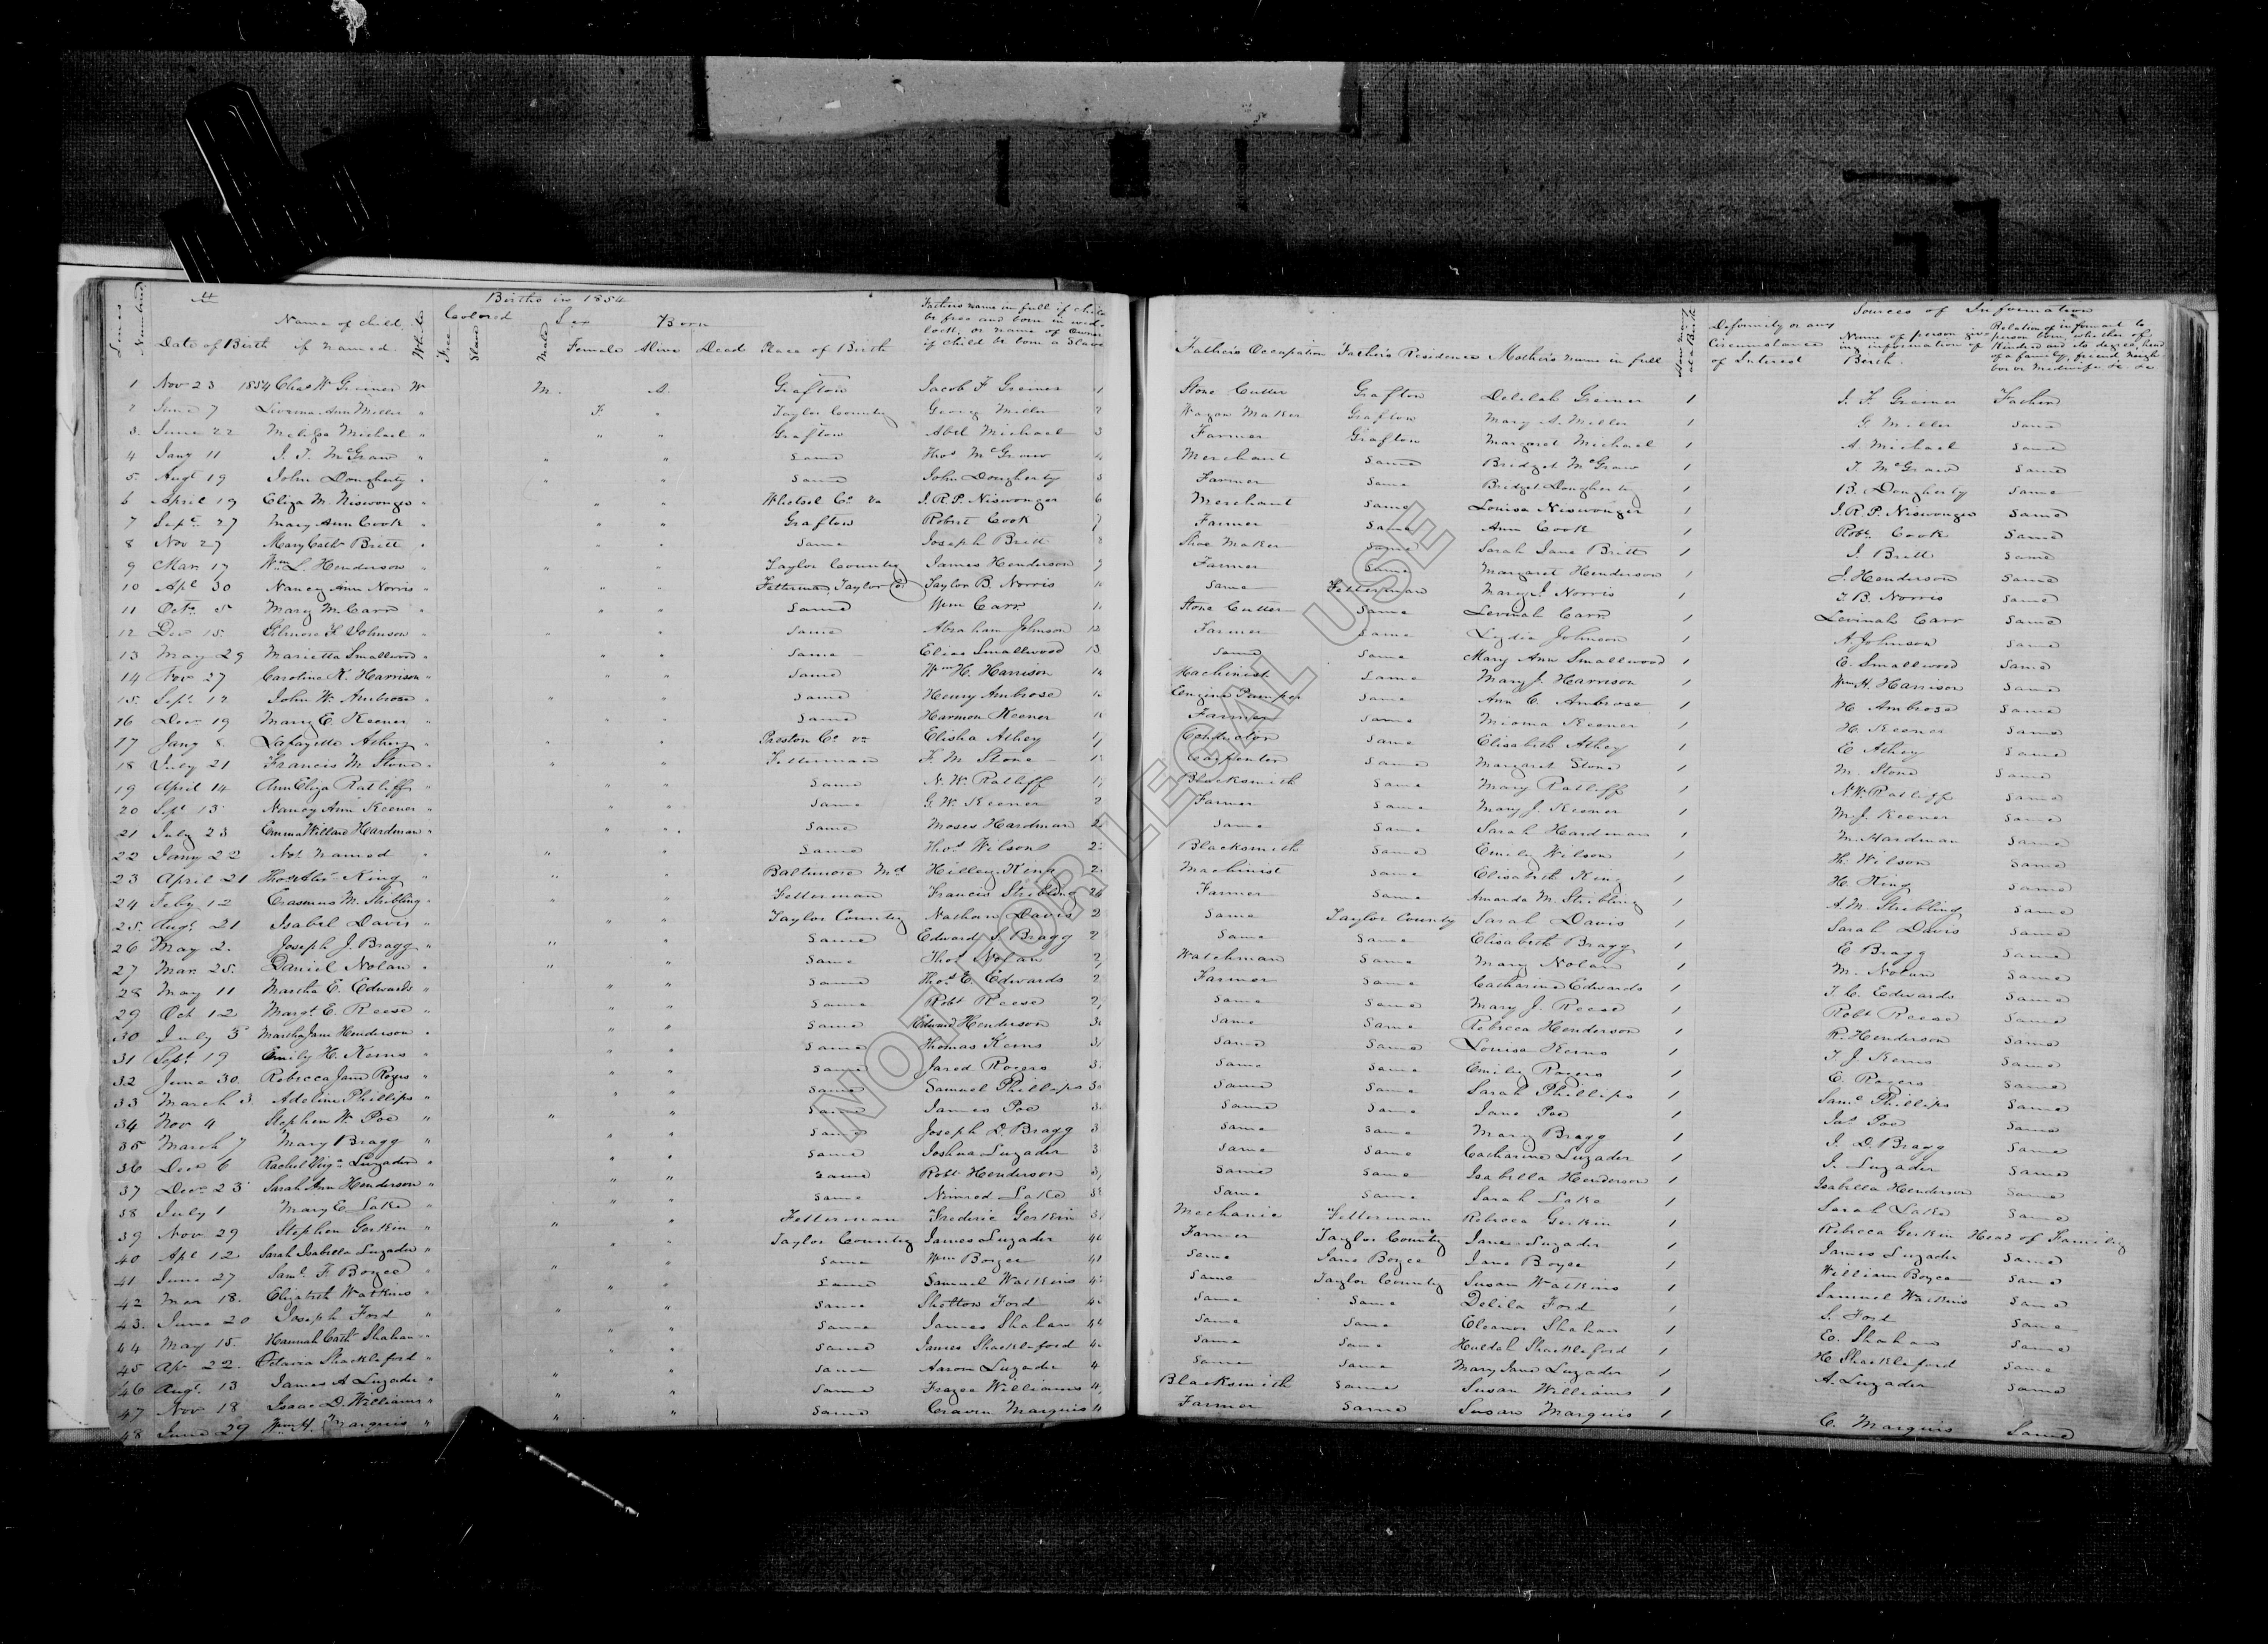 Births in 1854
Lines Numbered
Date of Birth
Name of child if named
White
Colored
Free
Slave
Sex
Male
Female
Born
Alive
Dead
Place of Birth
Fathers name in full if child
be free and born in wed-
lock, or name of owner
if child be born a Slave
Father's Occupation
Father's Residence
Mother's name in full
at a Birth
Deformity or any
Circumstance
of Interest
Sources of Information
Name of person giv-
ing information of
Birth.
Relation of informant to
1 Nov 23 1854 Chas W Greiner W M. A. Grafton Jacob F Greiner 1 Stone Cutter Grafton Delilah Greiner 1 J. F. Greiner Father
2 June 7 Ann Miller " F. " Taylor County George Miller 2 Wagon Maker Grafton Mary A. Miller 1 G Miller Same
3 June 22 Melissa Michael " " " Grafton Abel Michael 3 Farmer Grafton Margaret Michael 1 A Michael Same
4 Jany 11 J. T. McGraw " " " Same Thos McGraw 4 Merchant Same Bridget McGraw 1 T. McGraw Same
5 Augt 19 John Dougherty " " " Same John Dougherty 5 Farmer Same Bridget Dougherty 1 B. Dougherty Same
6 April 19 Eliza M. Niswonger " " " Co. Va J. R. P. Niswonger 6 Merchant Same Louisa Niswonger 1 J. R. P. Niswonger Same
7 Sept 27 Mary Ann Cook " " " Grafton Robert Cook 7 Farmer Same Ann Cook 1 Robt Cook Same
8 Nov 27 Mary Cath Britt " " " Same Joseph Britt 8 Shoe Maker Same Sarah Jane Britt 1 J. Britt Same
9 Mar 17 Wm L. Henderson " " " Taylor County James Henderson 9 Farmer Same Margaret Henderson 1 J. Henderson Same
10 Apl 30 Nancy Ann Norris " " " Fetterman Taylor Co Taylor B. Norris 10 Same Fetterman Mary J. Norris 1 T. B. Norris Same
11 Octr 5 Mary M. Carr " " " Same Wm Carr 11 Stone Cutter Same Levinah Carr 1 Levinah Carr Same
12 Dec 15 Gilmore F. Johnson " " " Same Abraham Johnson 12 Farmer Same Lydia Johnson 1 A Johnson Same
13 May 29 Marietta Smallwood " " " Same Elias Smallwood 13 Same Same Mary Ann Smallwood 1 E. Smallwood Same
14 Nov 27 Caroline K. Harrison " " " Same Wm H. Harrison 14 Machinist Same Mary J. Harrison 1 Wm H. Harrison Same
15 Sept 12 John W. Ambrose " " " Same Henry Ambrose Engine Pumper Same Ann C. Ambrose 1 H Ambrose Same
16 Dec 19 Mary E. Keener " " " Same Harmon Keener Farmer Same Mioma Keener 1 H. Keener Same
17 Jany 8 Lafayette Athey " " " Preston Co Va Elisha Athey Conductor Same Elisabeth Athey 1 E Athey Same
18 July 21 Francis M. Stone " " " Fetterman F. M. Stone Carpenter Same Margaret Stone 1 M. Stone Same
19 April 14 Ann Eliza Ratliff " " " Same N. W. Ratliff Blacksmith Same Mary Ratliff 1 N. W. Ratliff Same
20 Sept 13 Nancy Ann Keener " " " Same G. W. Keener Farmer Same Mary J. Keener 1 M. J. Keener Same
21 July 23 Emma Willard Hardman " " " Same Moses Hardman Same Same Sarah Hardman 1 M Hardman Same
22 Jany 22 Not Named " " " Same Thos Wilson Blacksmith Same Emily Wilson 1 Th. Wilson Same
23 April 21 Thos Alex King " " " Baltimore Md Hilley King Machinist Same Elisabeth King 1 H. King Same
24 Feby 12 Erasmus M. Stribling " " " Fetterman Francis Stribling 24 Farmer Same Amanda M. Stribling 1 A. M. Stribling Same
25 Augt 21 Isabel Davis " " " Taylor County Nathan Davis Same Taylor County Sarah Davis 1 Sarah Davis Same
26 May 2 Joseph J. Bragg " " " Same Edward S. Bragg Same Same Elisabeth Bragg 1 E Bragg Same
27 Mar 25 Daniel Nolan " " " Same Thos Nolan Watchman Same Mary Nolan 1 M. Nolan Same
28 May 11 Martha E. Edwards " " " Same Thos E. Edwards Farmer Same Catharine Edwards 1 T. E. Edwards Same
29 Oct 12 Margt E. Reese " " " Same Robt Reese Same Same Mary J. Reese 1 Robt Reese Same
30 July 5 Martha Jane Henderson " " " Same Edward Henderson Same Same Rebecca Henderson 1 R. Henderson Same
31 Sept 19 Emily H. Kerns " " " Same Thomas Kerns Same Same Louisa Kerns 1 T. J. Kerns Same
32 June 30 Rebecca Jane Rogers " " " Same Jared Rogers Same Same Emily Rogers 1 E. Rogers Same
33 March 3 Adeline Phillips " " " Same Samuel Phillips Same Same Sarah Phillips 1 Saml Phillips Same
34 Nov 4 Stephen W. Poe " " " Same James Poe Same Same Jane Poe 1 Jas Poe Same
35 March 7 Mary Bragg " " " Same Joseph D. Bragg Same Same Mary Bragg 1 J. D. Bragg Same
36 Dec 6 Rachel Virga Luzader " " " Same Joshua Luzader Same Same Catharine Luzader 1 J. Luzader Same
37 Dec 23 Sarah Ann Henderson " " " Same Robt Henderson Same Same Isabella Henderson 1 Isabella Henderson Same
38 July 1 Mary E. Lake " " " Same Nimrod Lake 38 Same Same Sarah Lake 1 Sarah Lake Same
39 Nov 29 Stephen Gerkin " " " Fetterman Frederic Gerkin Mechanic Fetterman Rebecca Gerkin 1 Rebecca Gerkin Head of Family
40 Apl 12 Sarah Isabella Luzader " " " Taylor County James Luzader 40 Farmer Taylor County Jane Luzader 1 James Luzader Same
41 June 27 Saml F. Boyce " " " Same Wm Boyce 41 Same Jane Boyce Jane Boyce 1 William Boyce Same
42 Mar 18 Elizabeth Watkins " " " Same Samuel Watkins Same Taylor County Susan Watkins 1 Samuel Watkins Same
43 June 20 Joseph Ford " " " Same Shelton Ford Same Same Delila Ford 1 S. Ford Same
44 May 15 Hannah Cath Shahan " " " Same James Shahan 44 Same Same Eleanor Shahan 1 E. Shahan Same
45 Apr 22 Octavia Shackleford " " " Same James Shackleford Same Same Huldah Shackleford 1 H Shackleford Same
46 Augt 13 James A Luzader " " " Same Aaron Luzader Same Same Mary Jane Luzader 1 A. Luzader Same
47 Nov 18 Isaac D. Williams " " " Same Frazee Williams Blacksmith Same Susan Williams 1
48 June 29 Wm H. Marquis " " " Same Craven Marquis Farmer Same Susan Marquis 1 C. Marquis Same
NOT FOR LEGAL USE